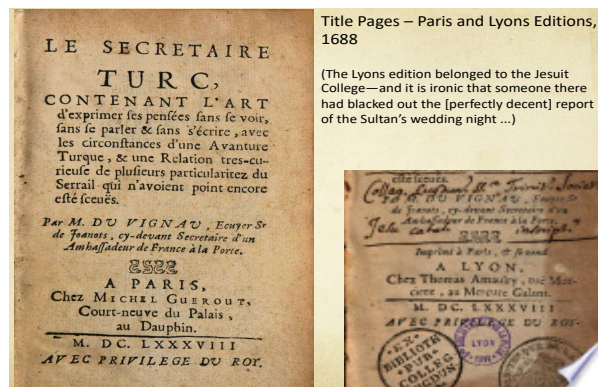 LE SECRETAIRE
TURC,
CONTENANT L'ART
d'exprimer ses pensées sans se voir,
sans se parler & sans s'écrire, avec
les circonstances d'une Avanture
Turque, & une Relation tres-cu-
rieuse de plusieurs particularitez du
Serrail qui n'avoient point encore
esté sceuës.
Par M. DU VIGNAU, Ecuyer Sr
de Joanots, cy-devant Secretaire d'un
Ambassadeur de France à la Porte.
A PARIS,
Chez MICHEL GUEROUT,
Court-neuve du Palais,
au Dauphin.
M. DC. LXXXVIII
AVEC PRIVILEGE DU ROY.
Title Pages – Paris and Lyons Editions,
1688
(The Lyons edition belonged to the Jesuit
College—and it is ironic that someone there
had blacked out the [perfectly decent] report
of the Sultan's wedding night ...)
esté sceuës.
Colleg. Trinit.
Par M. DU VIGNAU, Ecuyer Sr
de Joanots, cy-devant Secretaire d'un
Ambassadeur de France à la Porte.
Imprimé à Paris, & se vend
A LYON,
Chez Thomas Amaulry, ruë Mer-
ciere, au Mercure Galant.
M. DC. LXXXVIII
AVEC PRIVILEGE DU ROY.
LYON